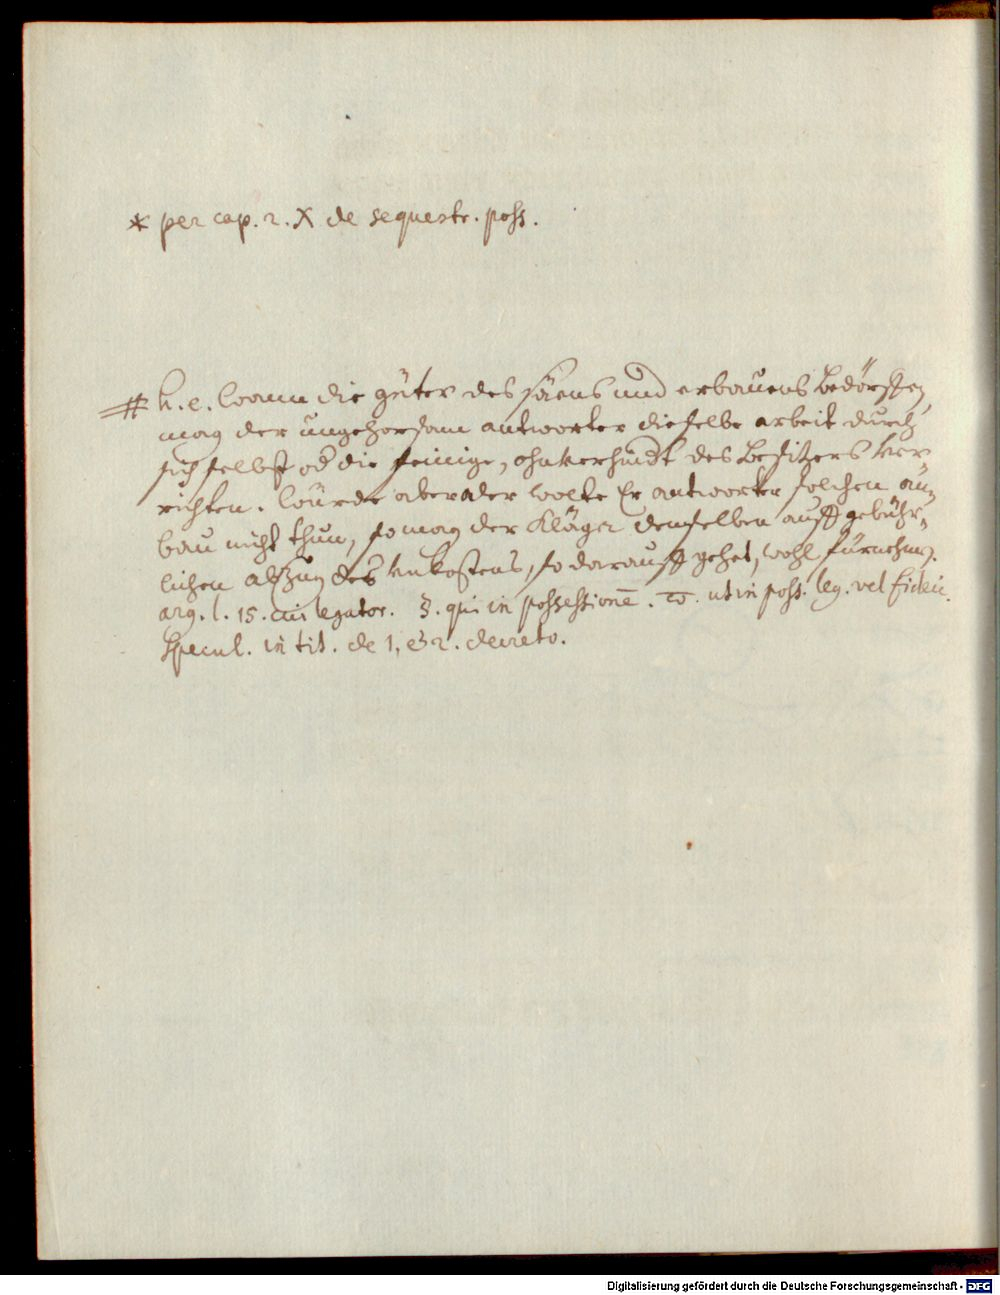 * per cap. 2. X de sequestr. poss.
# h. e. wann die güter des säens und erbauens bedörffen,
mag der ungehorsam antworter dieselbe arbeit durch
sich selbst od die seinige, ohnverhindt des Besitzers ver
richten. würde aber der wolte Er antworter solchen an=
bau nicht thun, so mag der Kläger demselben auff gebühr=
lichen abzug des unkostens, so darauff gehet, wohl fürnehmen.
arg. l. 15. cui legator. §. qui in possessionē. ut in poss. leg. vel fidei.
Specul. in tit. de 1. et 2. decreto.
Digitalisierung gefördert durch die Deutsche Forschungsgemeinschaft - DFG